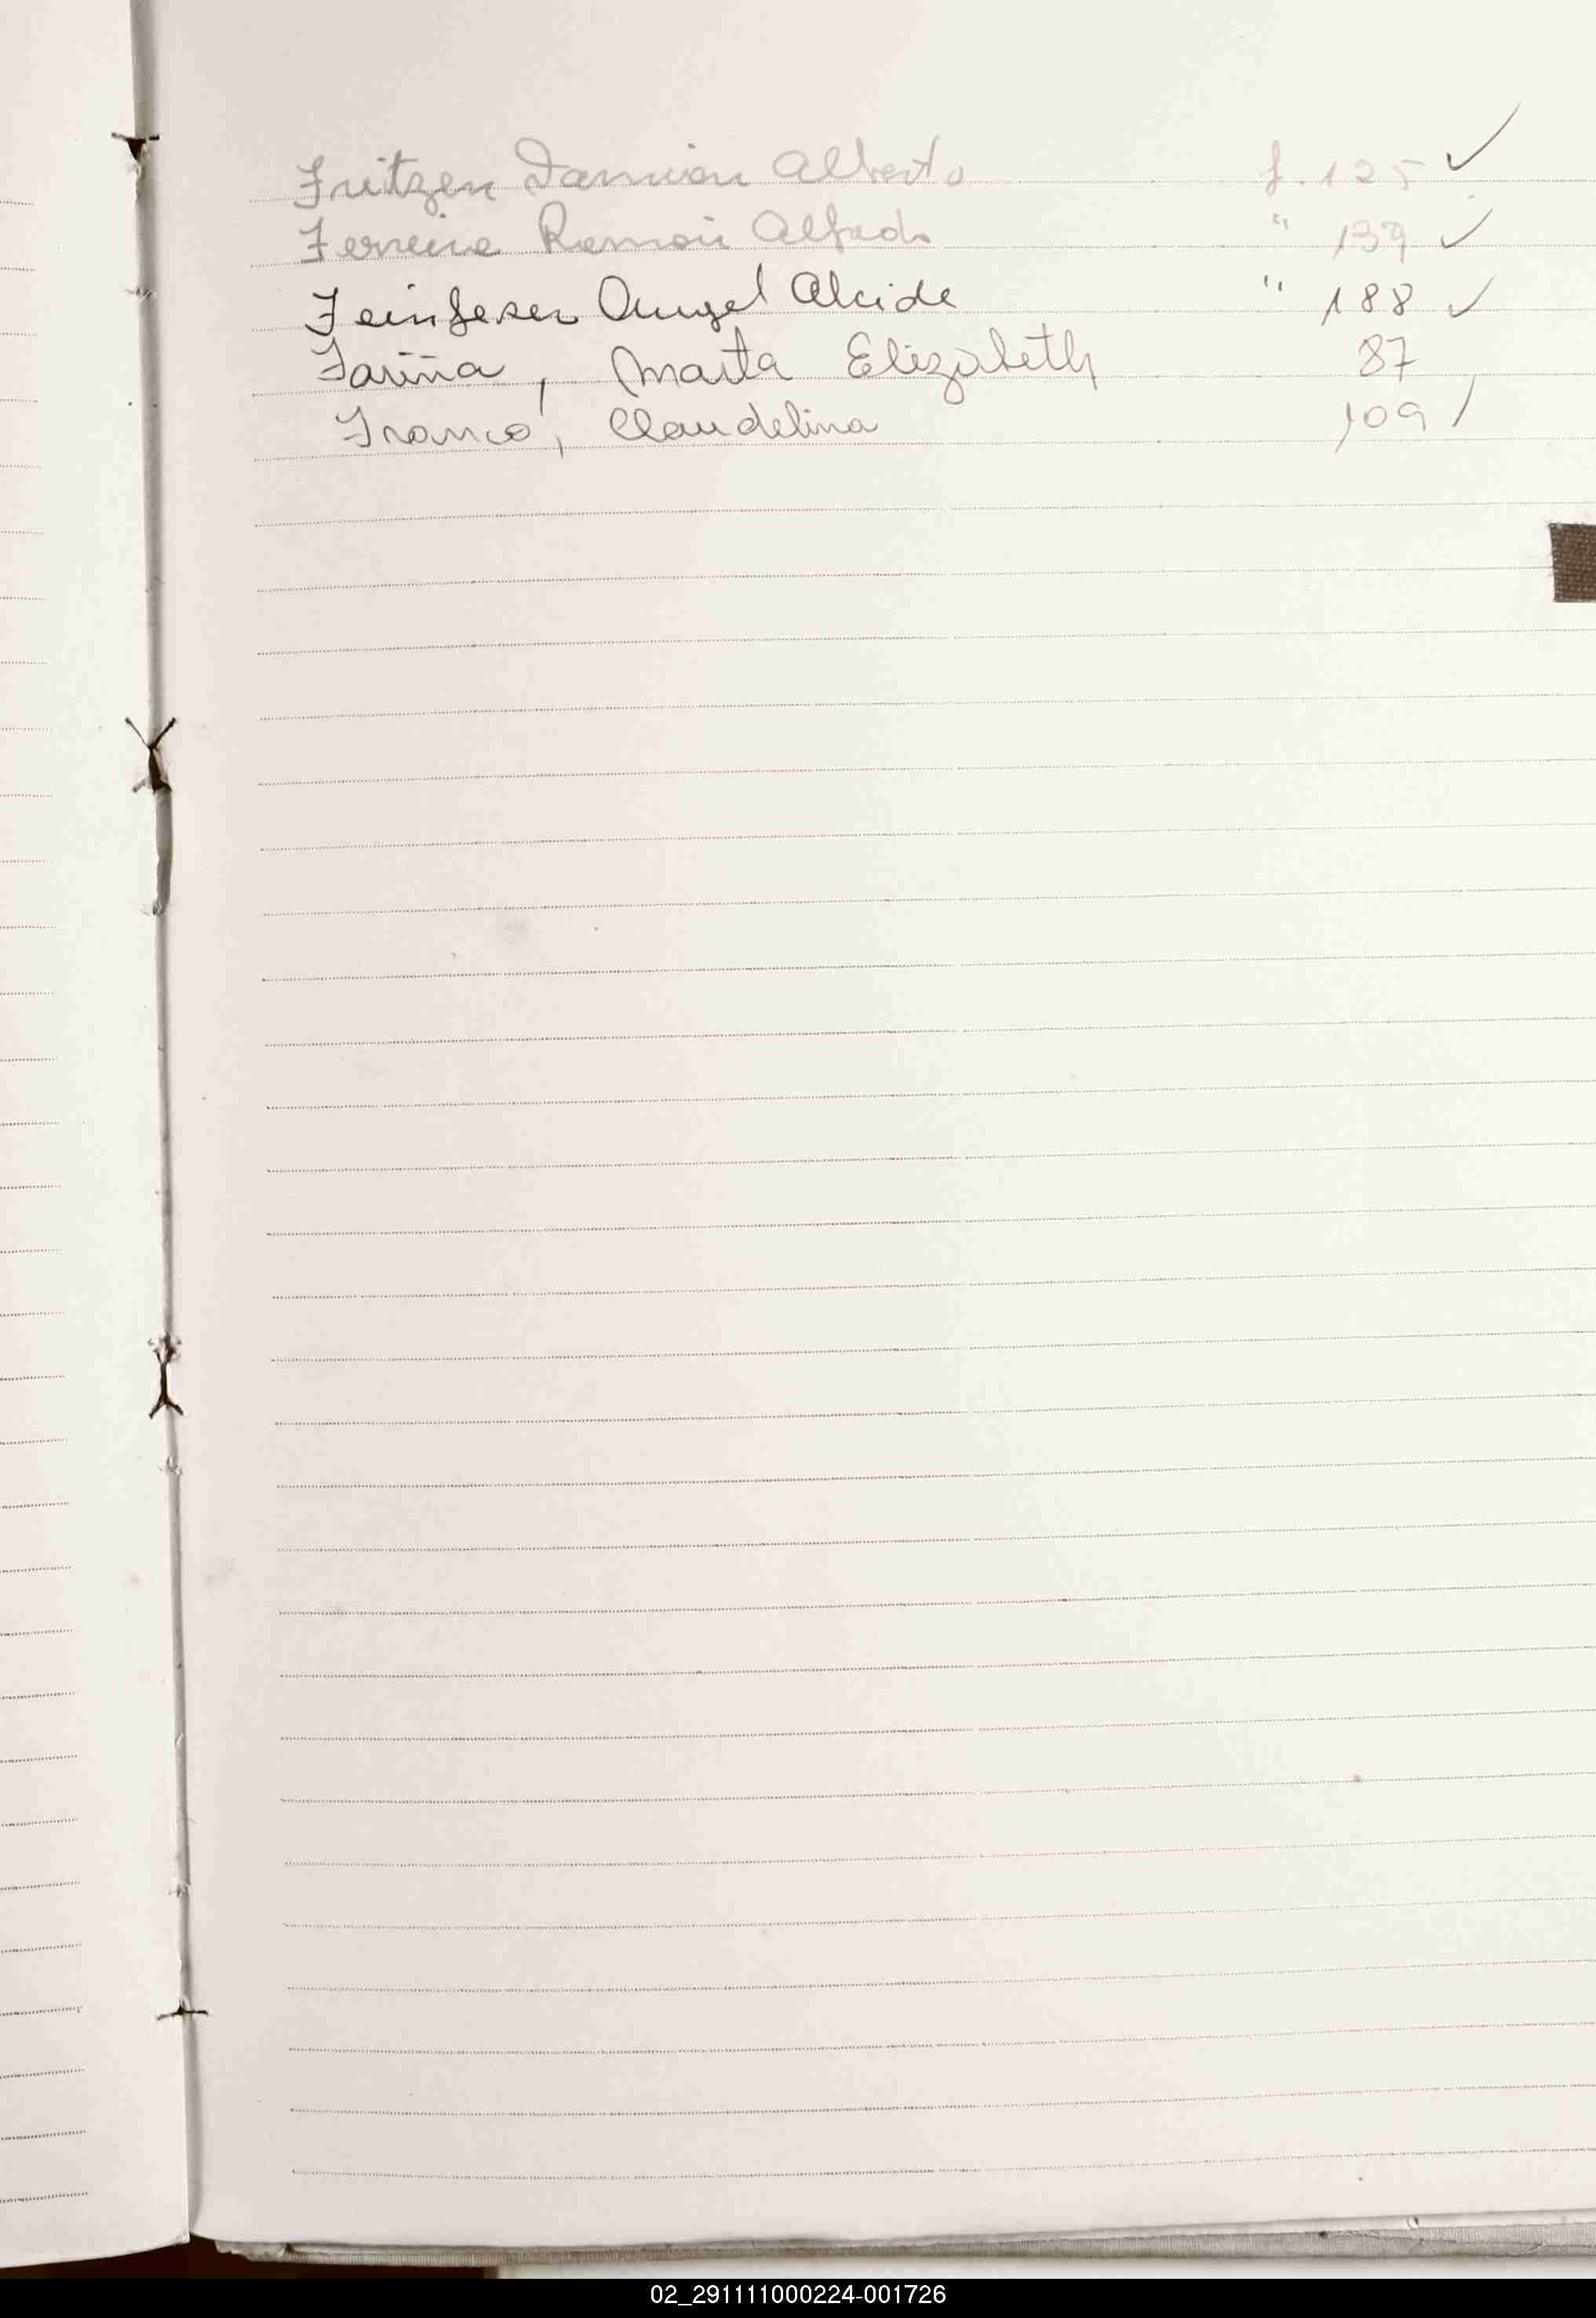 Fritzen Damian Alberto f. 125 ✓
Ferreira Ramon Alfredo " 139 ✓
Angel Alcide " 188 ✓
Fariña, Marta Elizabeth 87
Franco, Claudelina 109 /
02_291111000224-001726